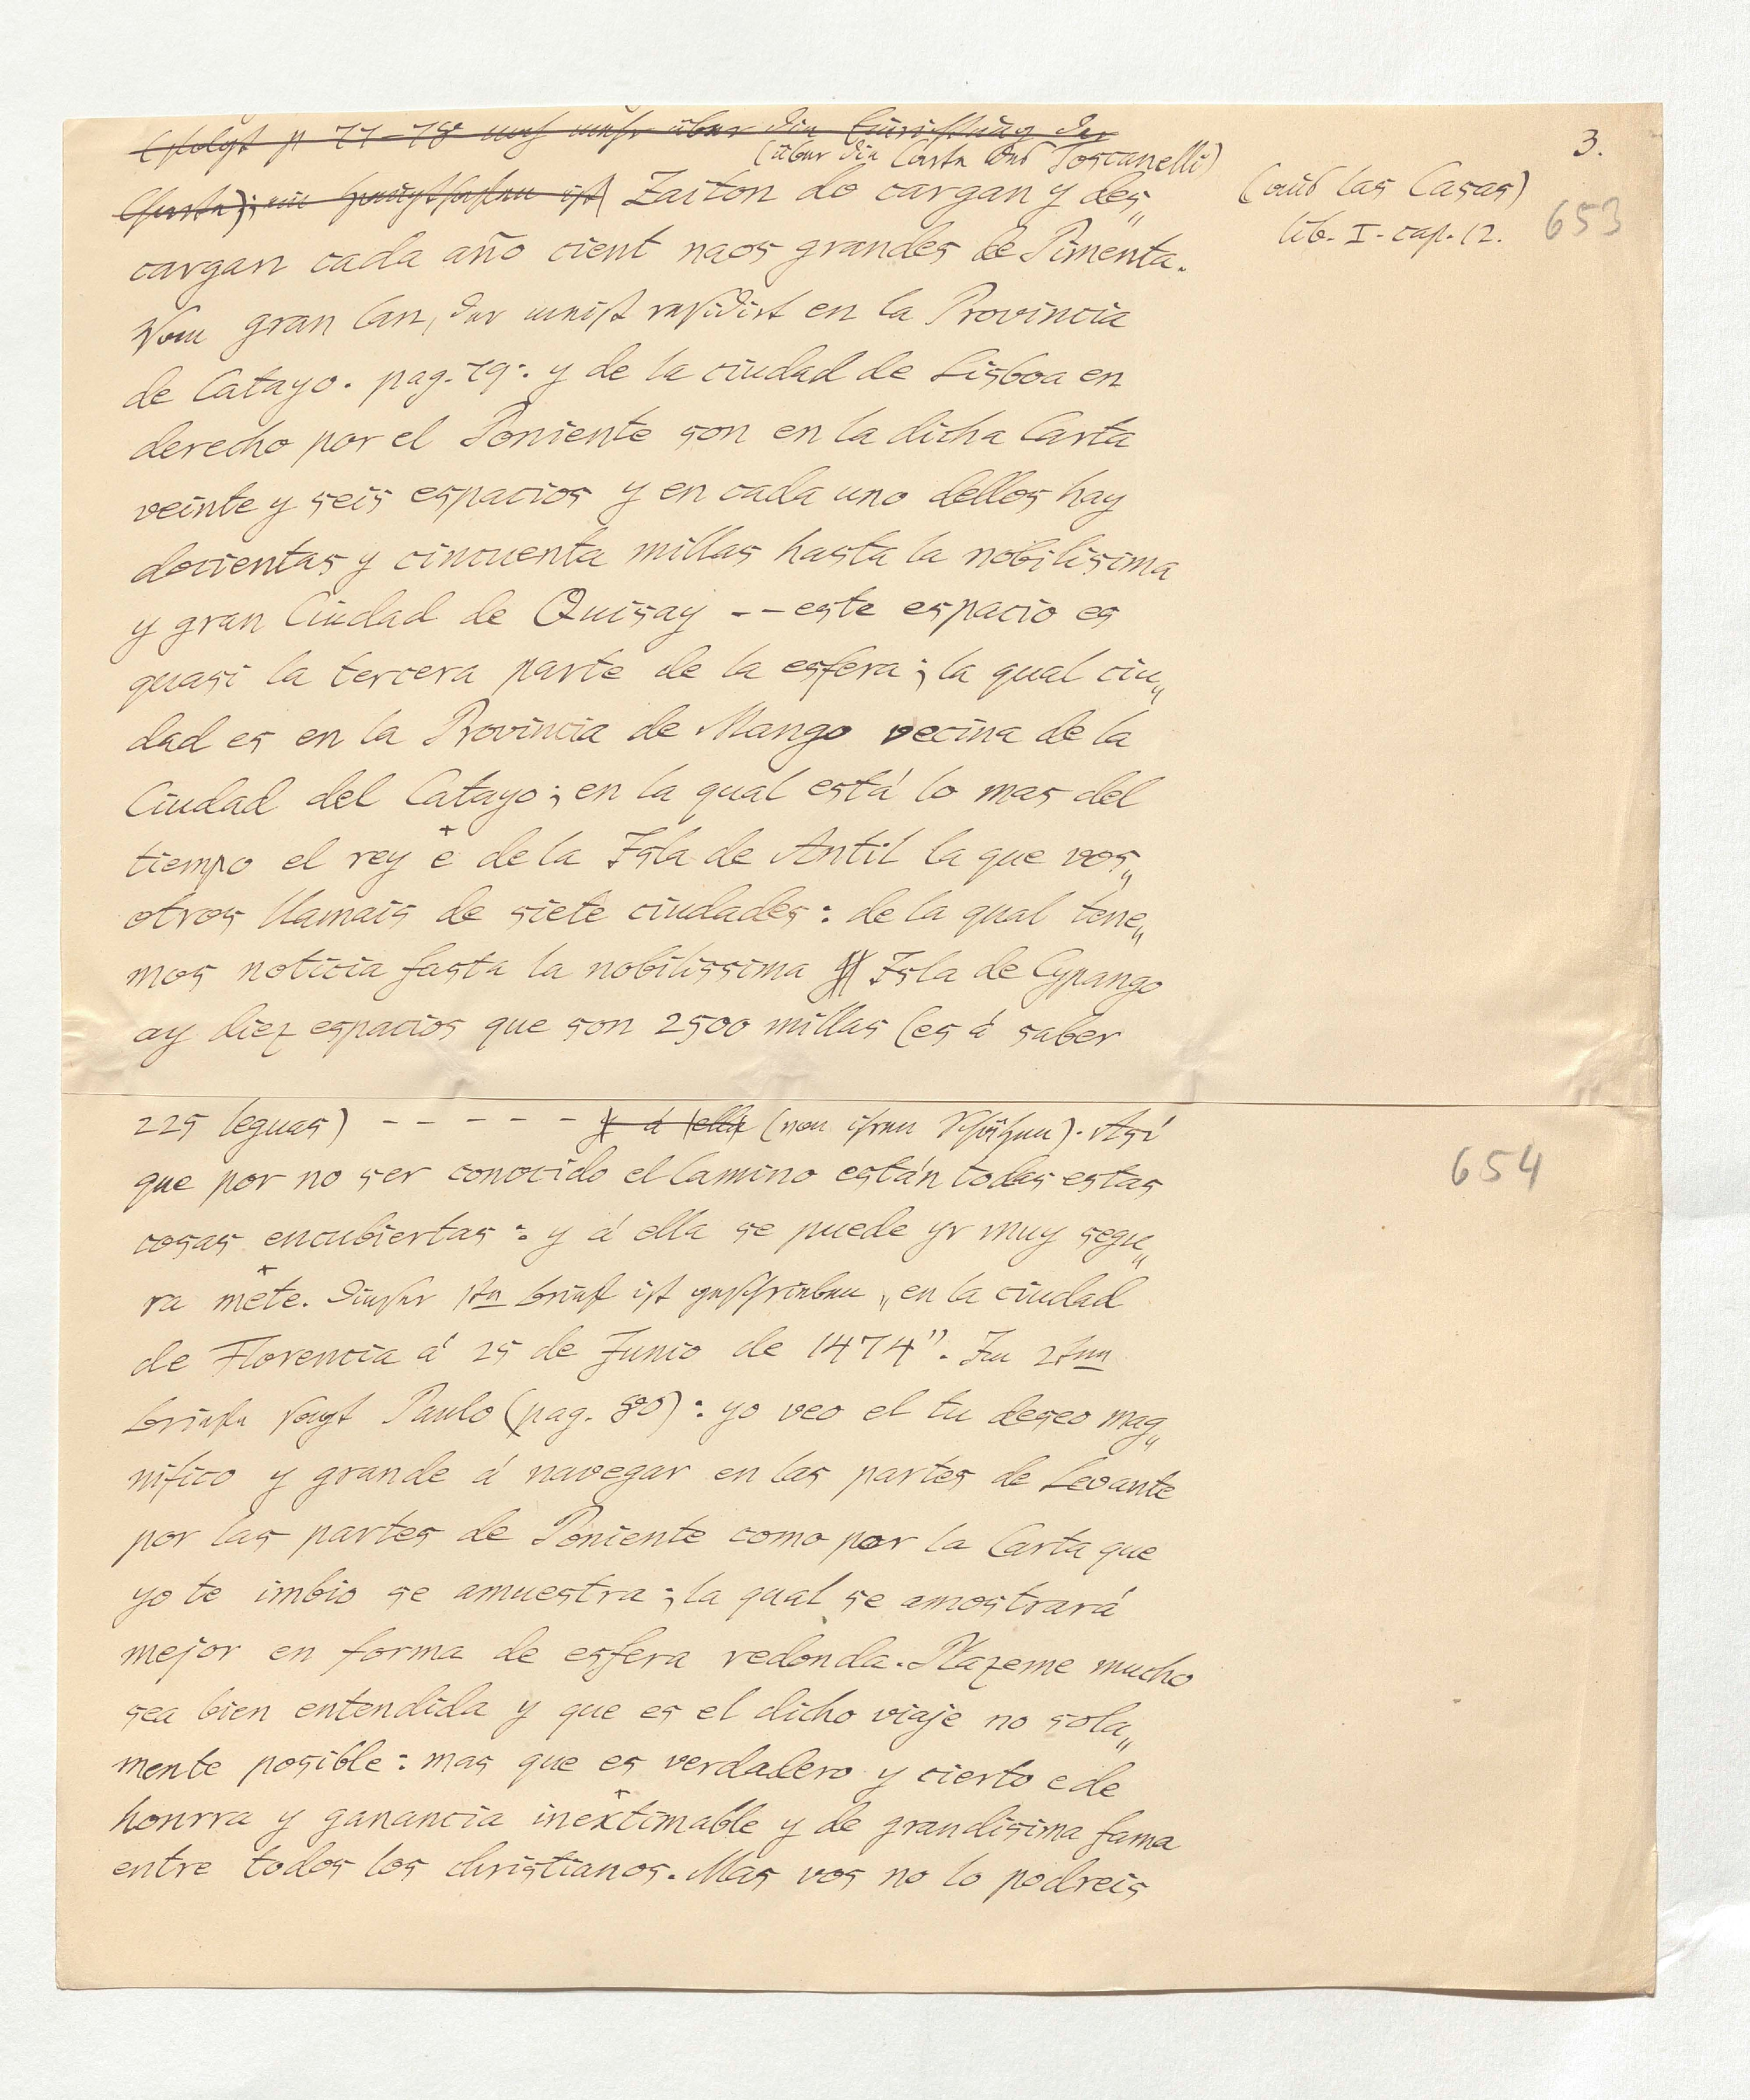 3.
(folgt p 77–78 noch mehr über die Einrichtung der
(über die Carta des Toscanelli)
Charta); ist) Zaiton do cargan y des„
(aus las Casas)
lib. I. cap. 12.
653
cargan cada año cient naos grandes de Pimenta.
Vom gran Can, der meist residirt en la Provincia
de Catayo. pag. 79. y de la ciudad de Lisboa en
derecho por el Poniente son en la dicha Carta
veinte y seis espacios y en cada uno dellos hay
docientas y cincuenta millas hasta la nobilisima
y gran Ciudad de Quisay -- este espacio es
quasi la tercera parte de la esfera; la qual ciu„
dad es en la Provincia de Mango vecina de la
Ciudad del Catayo; en la qual está lo mas del
tiempo el rey + é de la Isla de Antil la que vos„
otros llamais de siete ciudades: de la qual tene„
mos noticia fasta la nobilissima Isla de Cypango
ay diez espacios que son 2500 millas (es á saber
225 leguas) ----- á ella (von ihren Schäzen). Así
654
que por no ser conocido el Camino están todas estas
cosas encubiertas: y á ella se puede yr muy segu„
ra + mēte. Dieser 1te Brief ist geschrieben „en la ciudad
de Florencia á 25 de Junio de 1474". Im 2ten
Briefe sagt Paulo (pag. 80): yo veo el tu deseo mag„
nifico y grande á navegar en las partes de Levante
por las partes de Poniente como por la Carta que
yo te imbio se amuestra; la qual se amostrará
mejor en forma de esfera redonda. Plazeme mucho
sea bien entendida y que es el dicho viaje no sola„
mente posible: mas que es verdadero y cierto e de
honrra y ganancia inextimable y de grandisima fama
entre todos los christianos. Mas vos no lo podreis